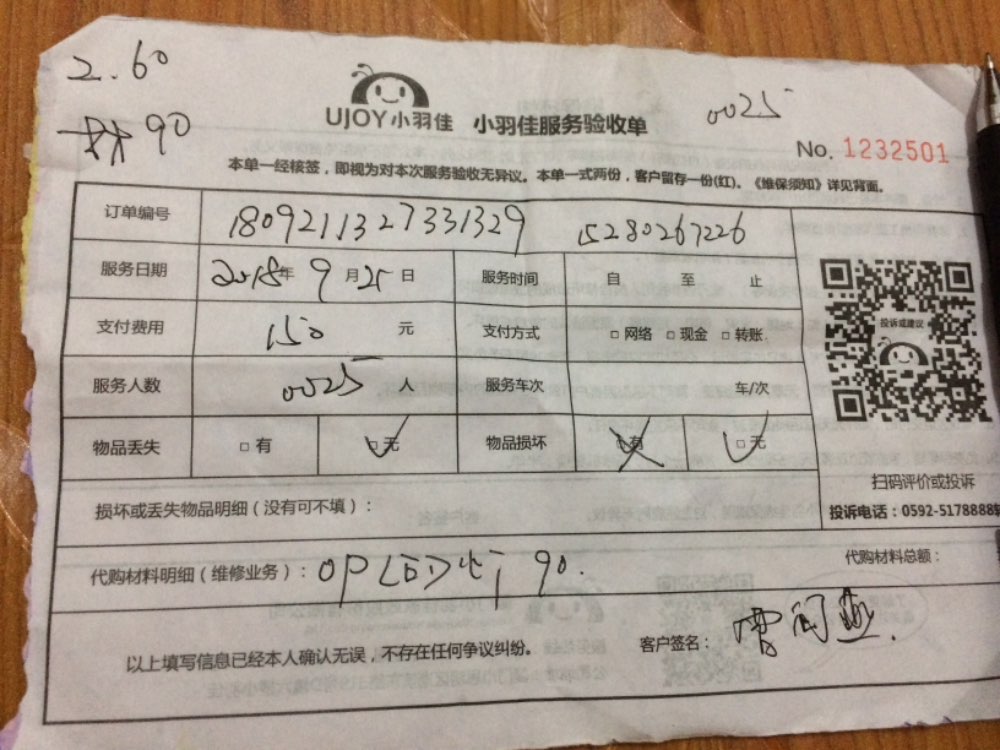 2.60
材90
UJOY小羽佳 小羽佳服务验收单
0025
No. 1232501
本单一经核签，即视为对本次服务验收无异议。本单一式两份，客户留存一份(红)。《维保须知》详见背面。
订单编号 1809211327331329 15280267226
服务日期 2018年 9月21日 服务时间 自 至 止
支付费用 150 元 支付方式 □网络 □现金 □转账
投诉或建议
服务人数 0025 服务车次 车/次
物品丢失 □有 □无 物品损坏 □有 □无
扫码评价或投诉
损坏或丢失物品明细（没有可不填）：
投诉电话：0592-5178888转
代购材料明细（维修业务）：OPLED灯 90. 代购材料总额：
以上填写信息已经本人确认无误，不存在任何争议纠纷。 客户签名：曹